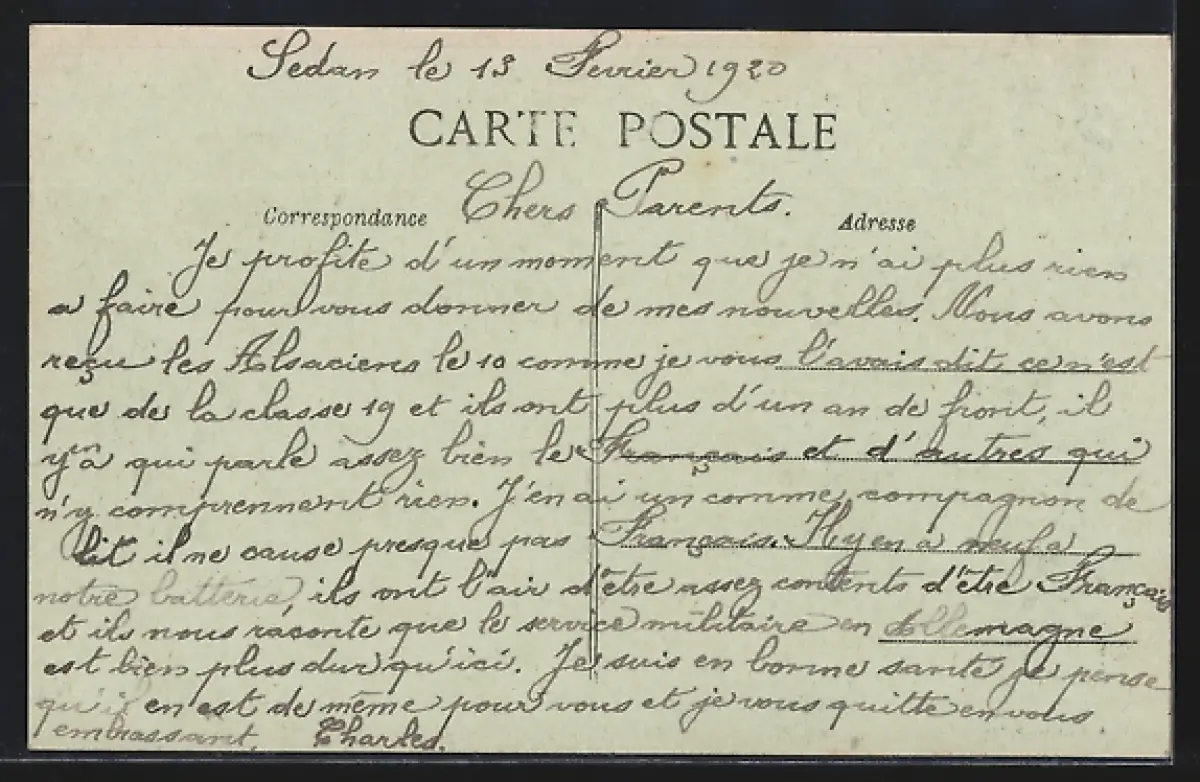 Sedan le 13 Fevrier 1920
CARTE POSTALE
Chers Parents.
Correspondance
Adresse
Je profite d'un moment que je n'ai plus rien
a faire pour vous donner de mes nouvelles. Nous avons
reçu les Alsaciens le 10 comme je vous l'avais dit, ce n'est
que de la classe 19 et ils ont plus d'un an de front, il
y en a qui parle assez bien le Français et d'autres qui
n'y comprennent rien. J'en ai un comme compagnon de
lit il ne cause presque pas Français. Il y en a neuf a
notre batterie, ils ont l'air d'être assez contents d'être Français
et ils nous raconte que le service militaire en Allemagne
est bien plus dur qu'ici. Je suis en bonne santé je pense
qu'il en est de même pour vous et je vous quitte en vous
embrassant. Charles.